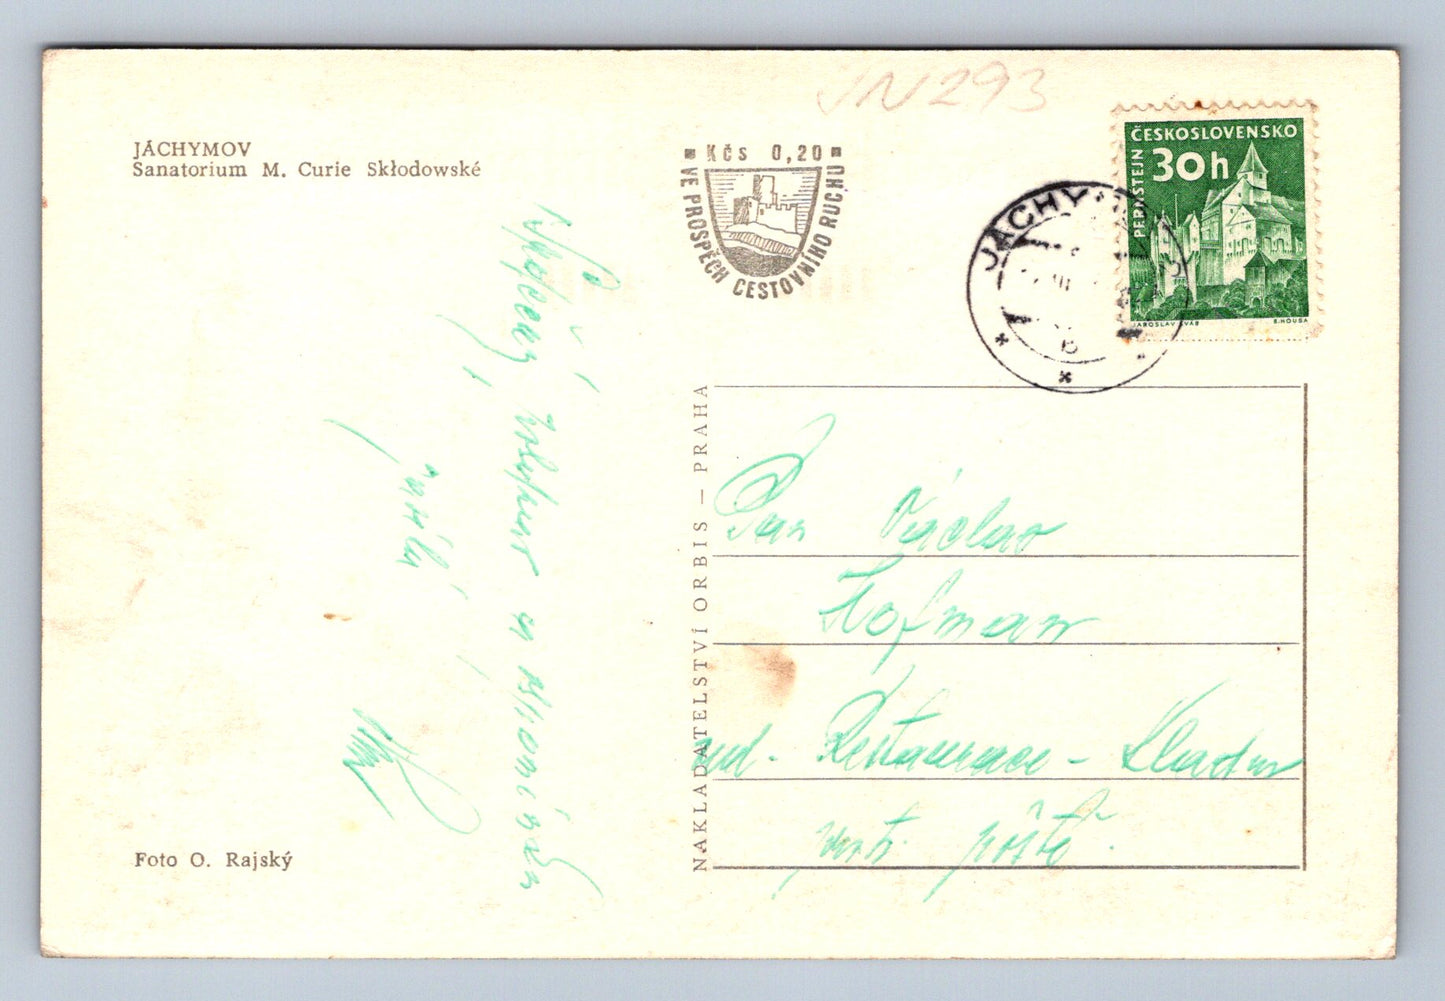 JN293
JÁCHYMOV
Sanatorium M. Curie Skłodowské
Kčs 0,20
VE PROSPĚCH CESTOVNÍHO RUCHU
ČESKOSLOVENSKO
30h
PERNŠTEJN
JAROSLAV ŠVÁB
B. HOUSA
JÁCHYMOV
Srdečný
a vzpomínku
NAKLADATELSTVÍ ORBIS — PRAHA
Pan Václav
Hofman
ved. Restaurace - Kladno
proti poště.
Foto O. Rajský